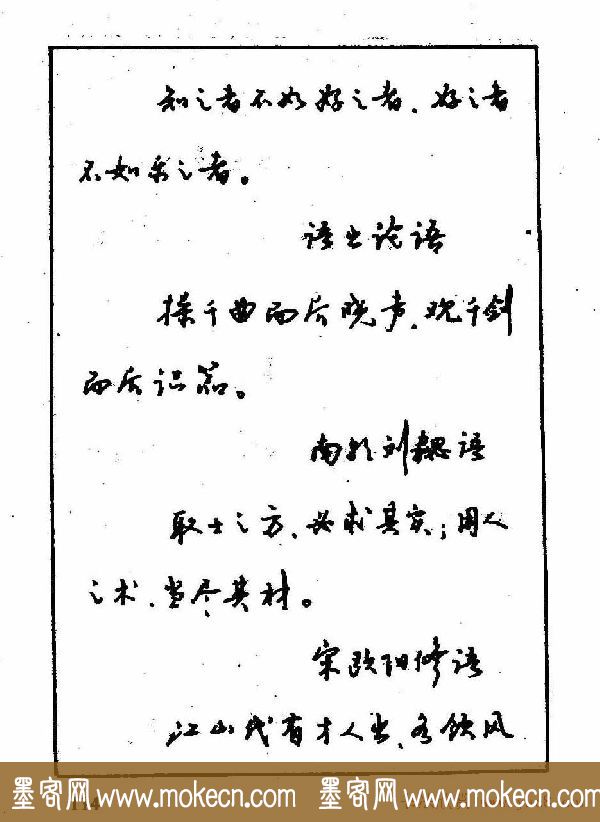 知之者不如好之者，好之者
不如乐之者。
语出论语
操千曲而后晓声，观千剑
而后识器。
南朝刘勰语
取士之方，必求其实；用人
之术，当尽其材。
宋欧阳修语
江山代有才人出，各领风
墨客网 www.mokecn.com 墨客网 www.mokecn.com